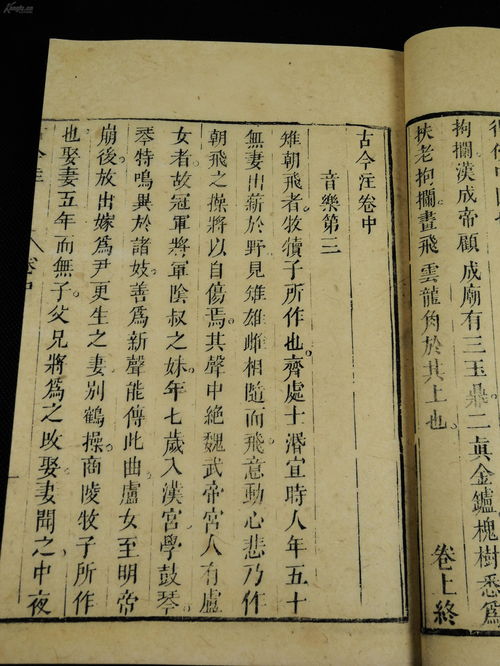 拘攔漢成帝顧成廟有三玉鼎二真金鑪槐樹悉為
扶老拘攔畫飛雲龍角於其上也
卷上終
古今注卷中
音樂第三
雉朝飛者牧犢子所作也齊處士湣宣時人年五十
無妻出薪於野見雉雄雌相隨而飛意動心悲乃作
朝飛之操將以自傷焉其聲中絕魏武帝宮人有盧
女者故冠軍將軍陰叔之妹年七歲入漢宮學鼓琴
琴特鳴異於諸妓善為新聲能傳此曲盧女至明帝
崩後放出嫁為尹更生之妻別鶴操商陵牧子所作
也娶妻五年而無子父兄將為之改娶妻聞之中夜
Kongfz.cn